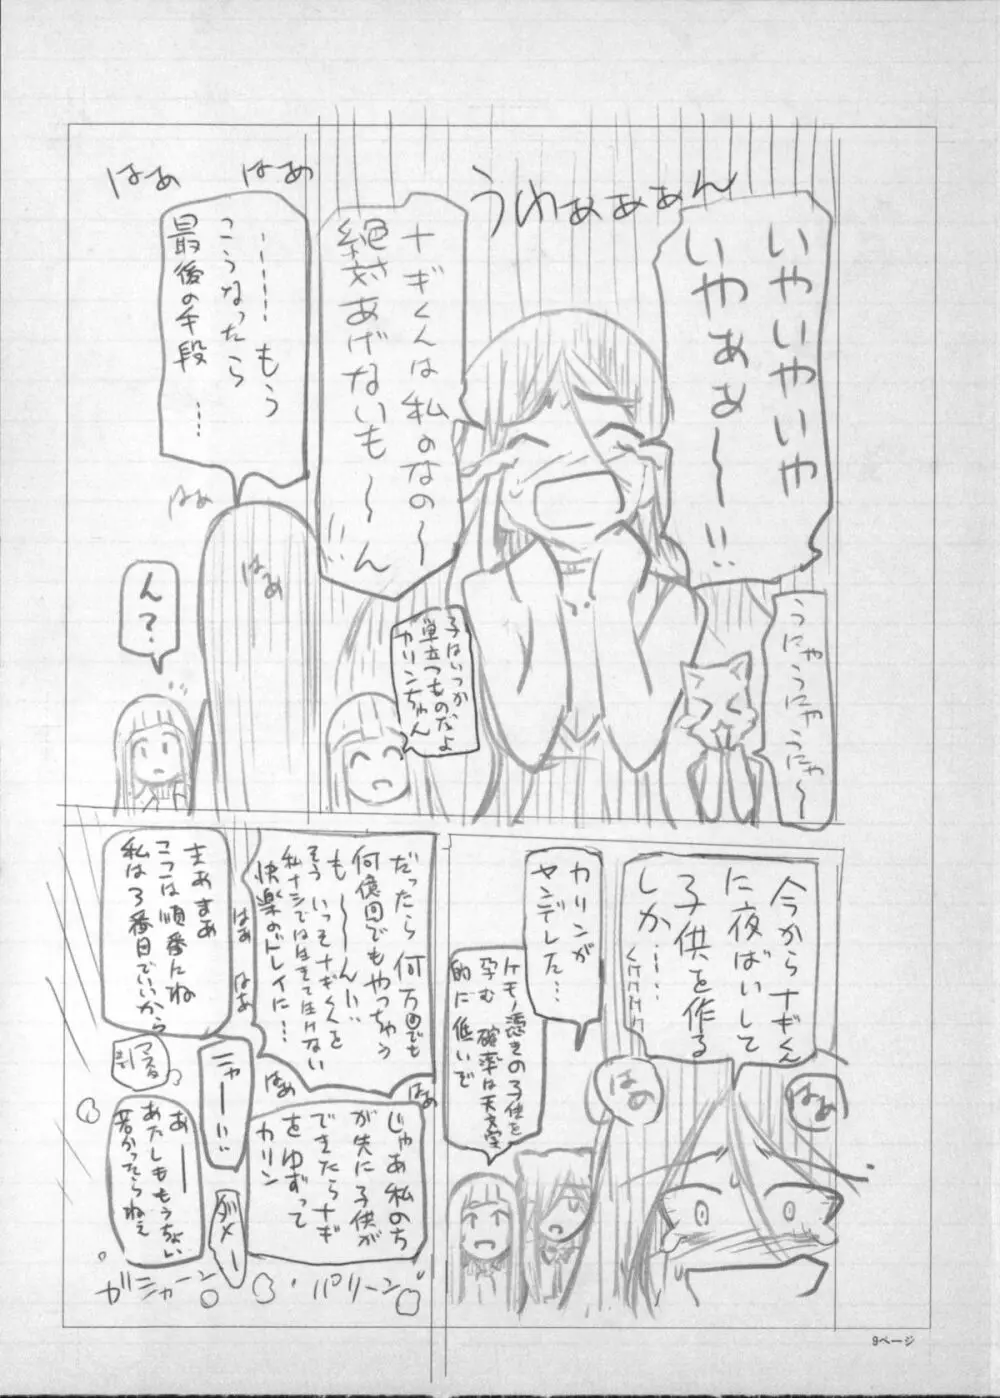 いやいやいや
いやぁぁ〜!!
うわぁぁぁん
うにゃうにゃうにゃ〜
ナギくんは私のなの〜
絶対あげないも〜ん!!
子はいつか
巣立つものだよ
カリンちゃん
はぁ
はぁ
……もう
こうなったら
最後の手段…
はぁ
はぁ
ん?
今からナギくん
に夜ばいして
子供を作る
しか……
はぁ
はぁ
カリンが
ヤンデレした…
ケモノ憑きの子供を
孕む確率は天文学
的に低いで
だったら何万回でも
何億回でもやっちゃう
も〜〜ん!!
そういっそナギくんを
私ナシでは生きて生けない
快楽のドレイに…
はぁ
はぁ
はぁ
はぁ
じゃあ私のち
が先に子供が
できたらナギ
をゆずって
カリン
まあまあ
ここは順番にね
私は3番目でいいから
ニャーー!!
ダメー
あ――
あたしももうちょい
若かってらねぇ
ガシャーン
パリーン
9ページ